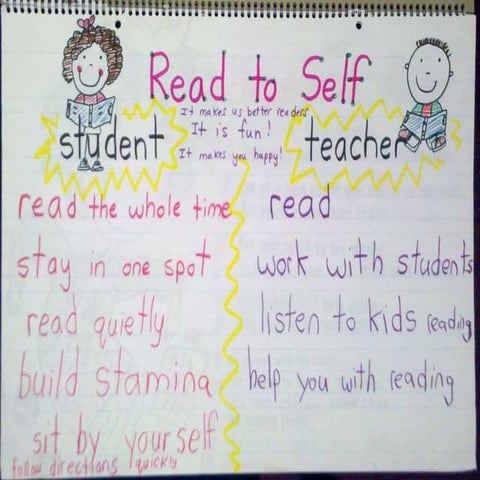 Read to Self
It makes us better readers
It is fun!
It makes you happy!
student
read the whole time
stay in one spot
read quietly
build stamina
sit by yourself
follow directions quickly
teacher
read
work with students
listen to kids reading
help you with reading